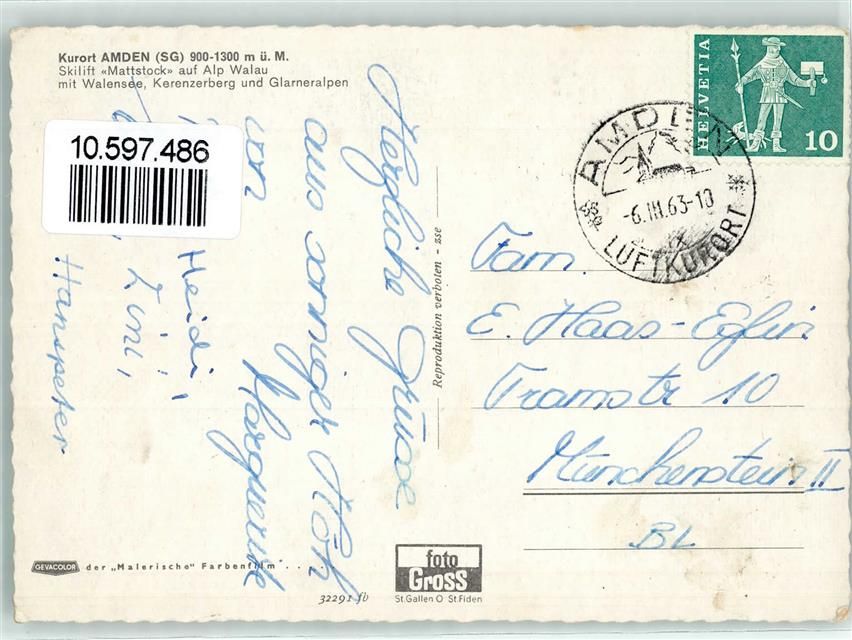 Kurort AMDEN (SG) 900-1300 m ü. M.
Skilift «Mattstock» auf Alp Walau
mit Walensee, Kerenzerberg und Glarneralpen
10.597.486
Herzliche Grüsse
aus sonniger Höh
von Marguerite
Heidi,
Zini,
Hanspeter
Reproduktion verboten - zse
HELVETIA
10
AMDEN
-6.III.63-10
LUFTKURORT
Fam.
E. Haas-Eglin
Tramstr 10
Münchenstein II
BL
GEVACOLOR der „Malerische" Farbenfilm . . . .
32291 fb
foto
Gross
St.Gallen O St.Fiden